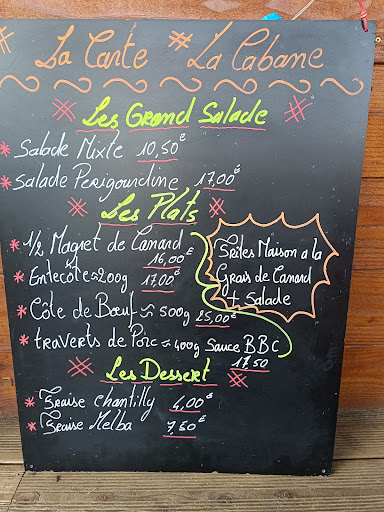 La Carte La Cabane
Les Grand Salade
Salade Mixte 10,50€
Salade Perigourdine 17,00€
Les Plats
1/2 Magret de Canard
16,00€
Entecôte ≈ 200g 17,00€
Côte de Bœuf ≈ 500g 25,00€
traverts de Porc ≈ 400g Sauce BBC
17.50
Frites Maison a la
Grais de Canard
+ Salade
Les Dessert
Fraise Chantilly 4,00€
Fraise Melba 7,50€